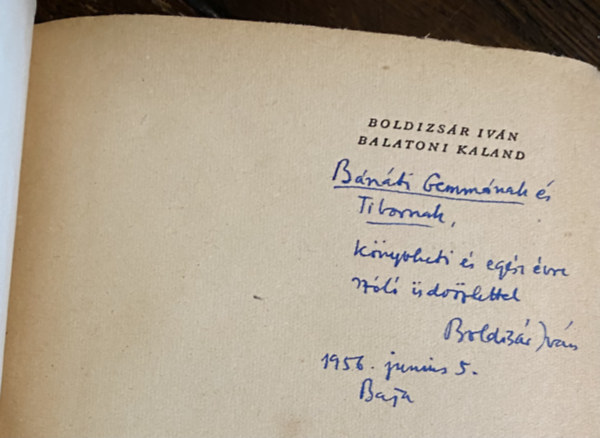 BOLDIZSÁR IVÁN
BALATONI KALAND
Bánáti Gemmának és
Tibornak,
Könyvheti és egész évre
szóló üdvözlettel
Boldizsár Iván
1956. junius 5.
Baja